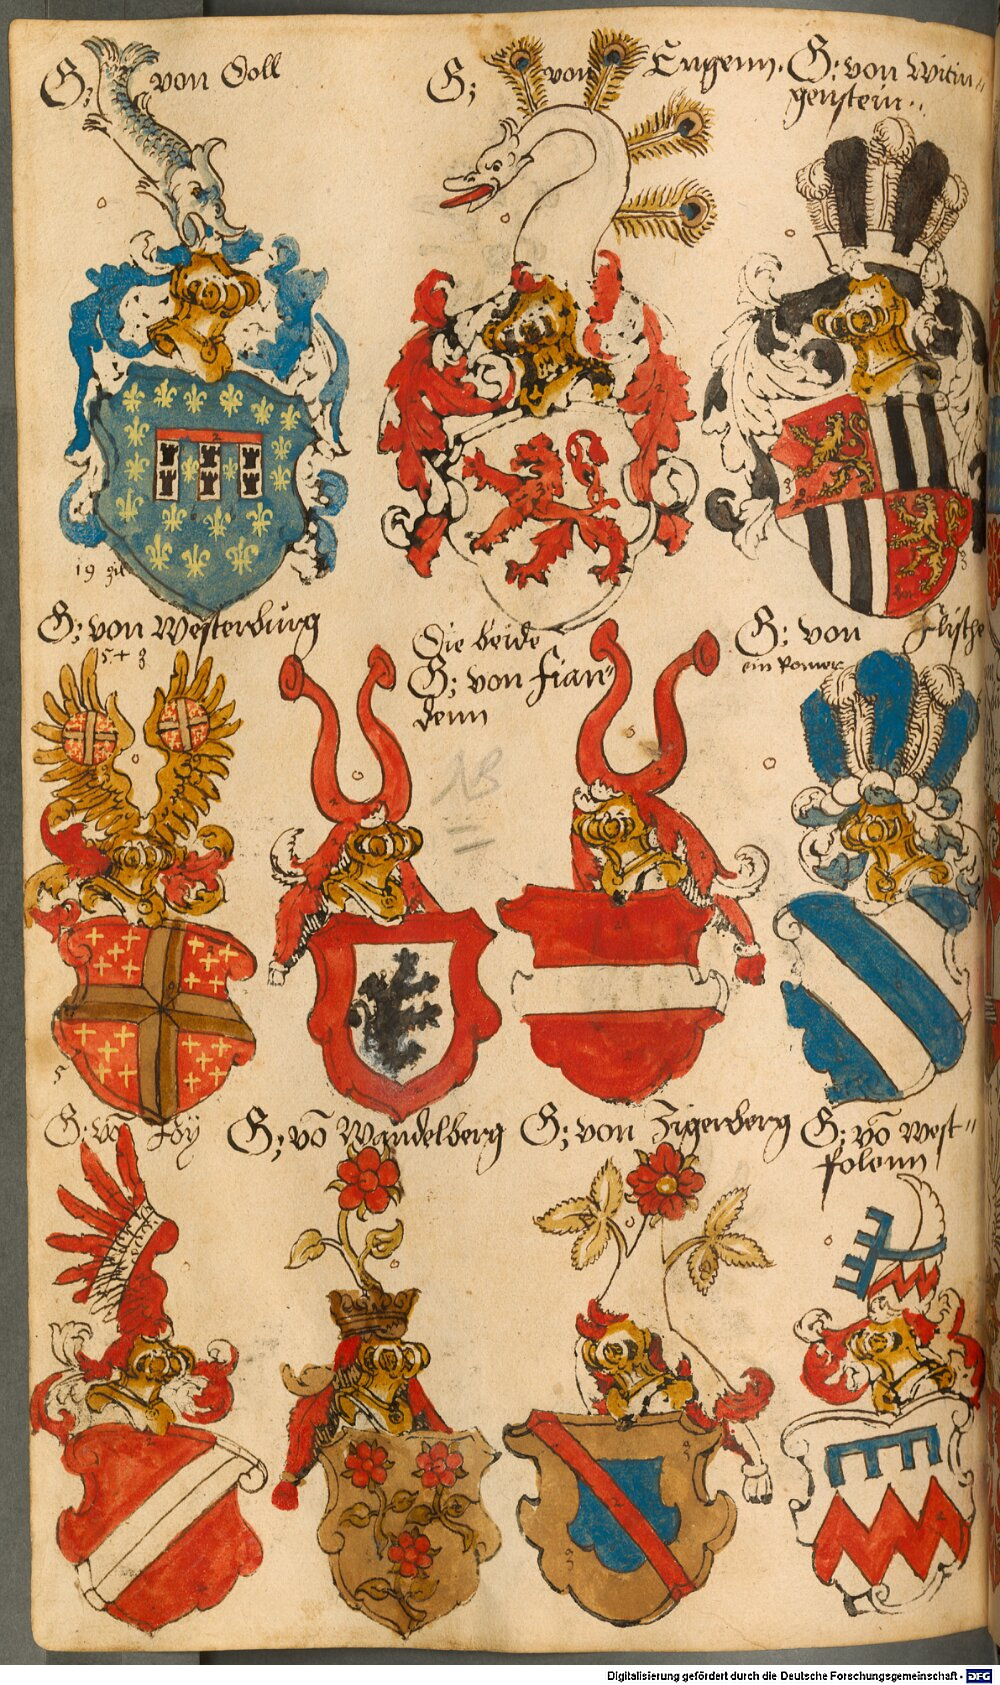 G; von Doll
G; von Engenn.
G: von Witin=
genstein..
19 gilg
G: von Westerburg
15 + 3
Die beide
G; von Fian=
denn
18
G; von Flische
ein Romer
G; vō
G; vō Wandelberg
G; von Zigerberg
G; vō West=
folonn
Digitalisierung gefördert durch die Deutsche Forschungsgemeinschaft - DFG